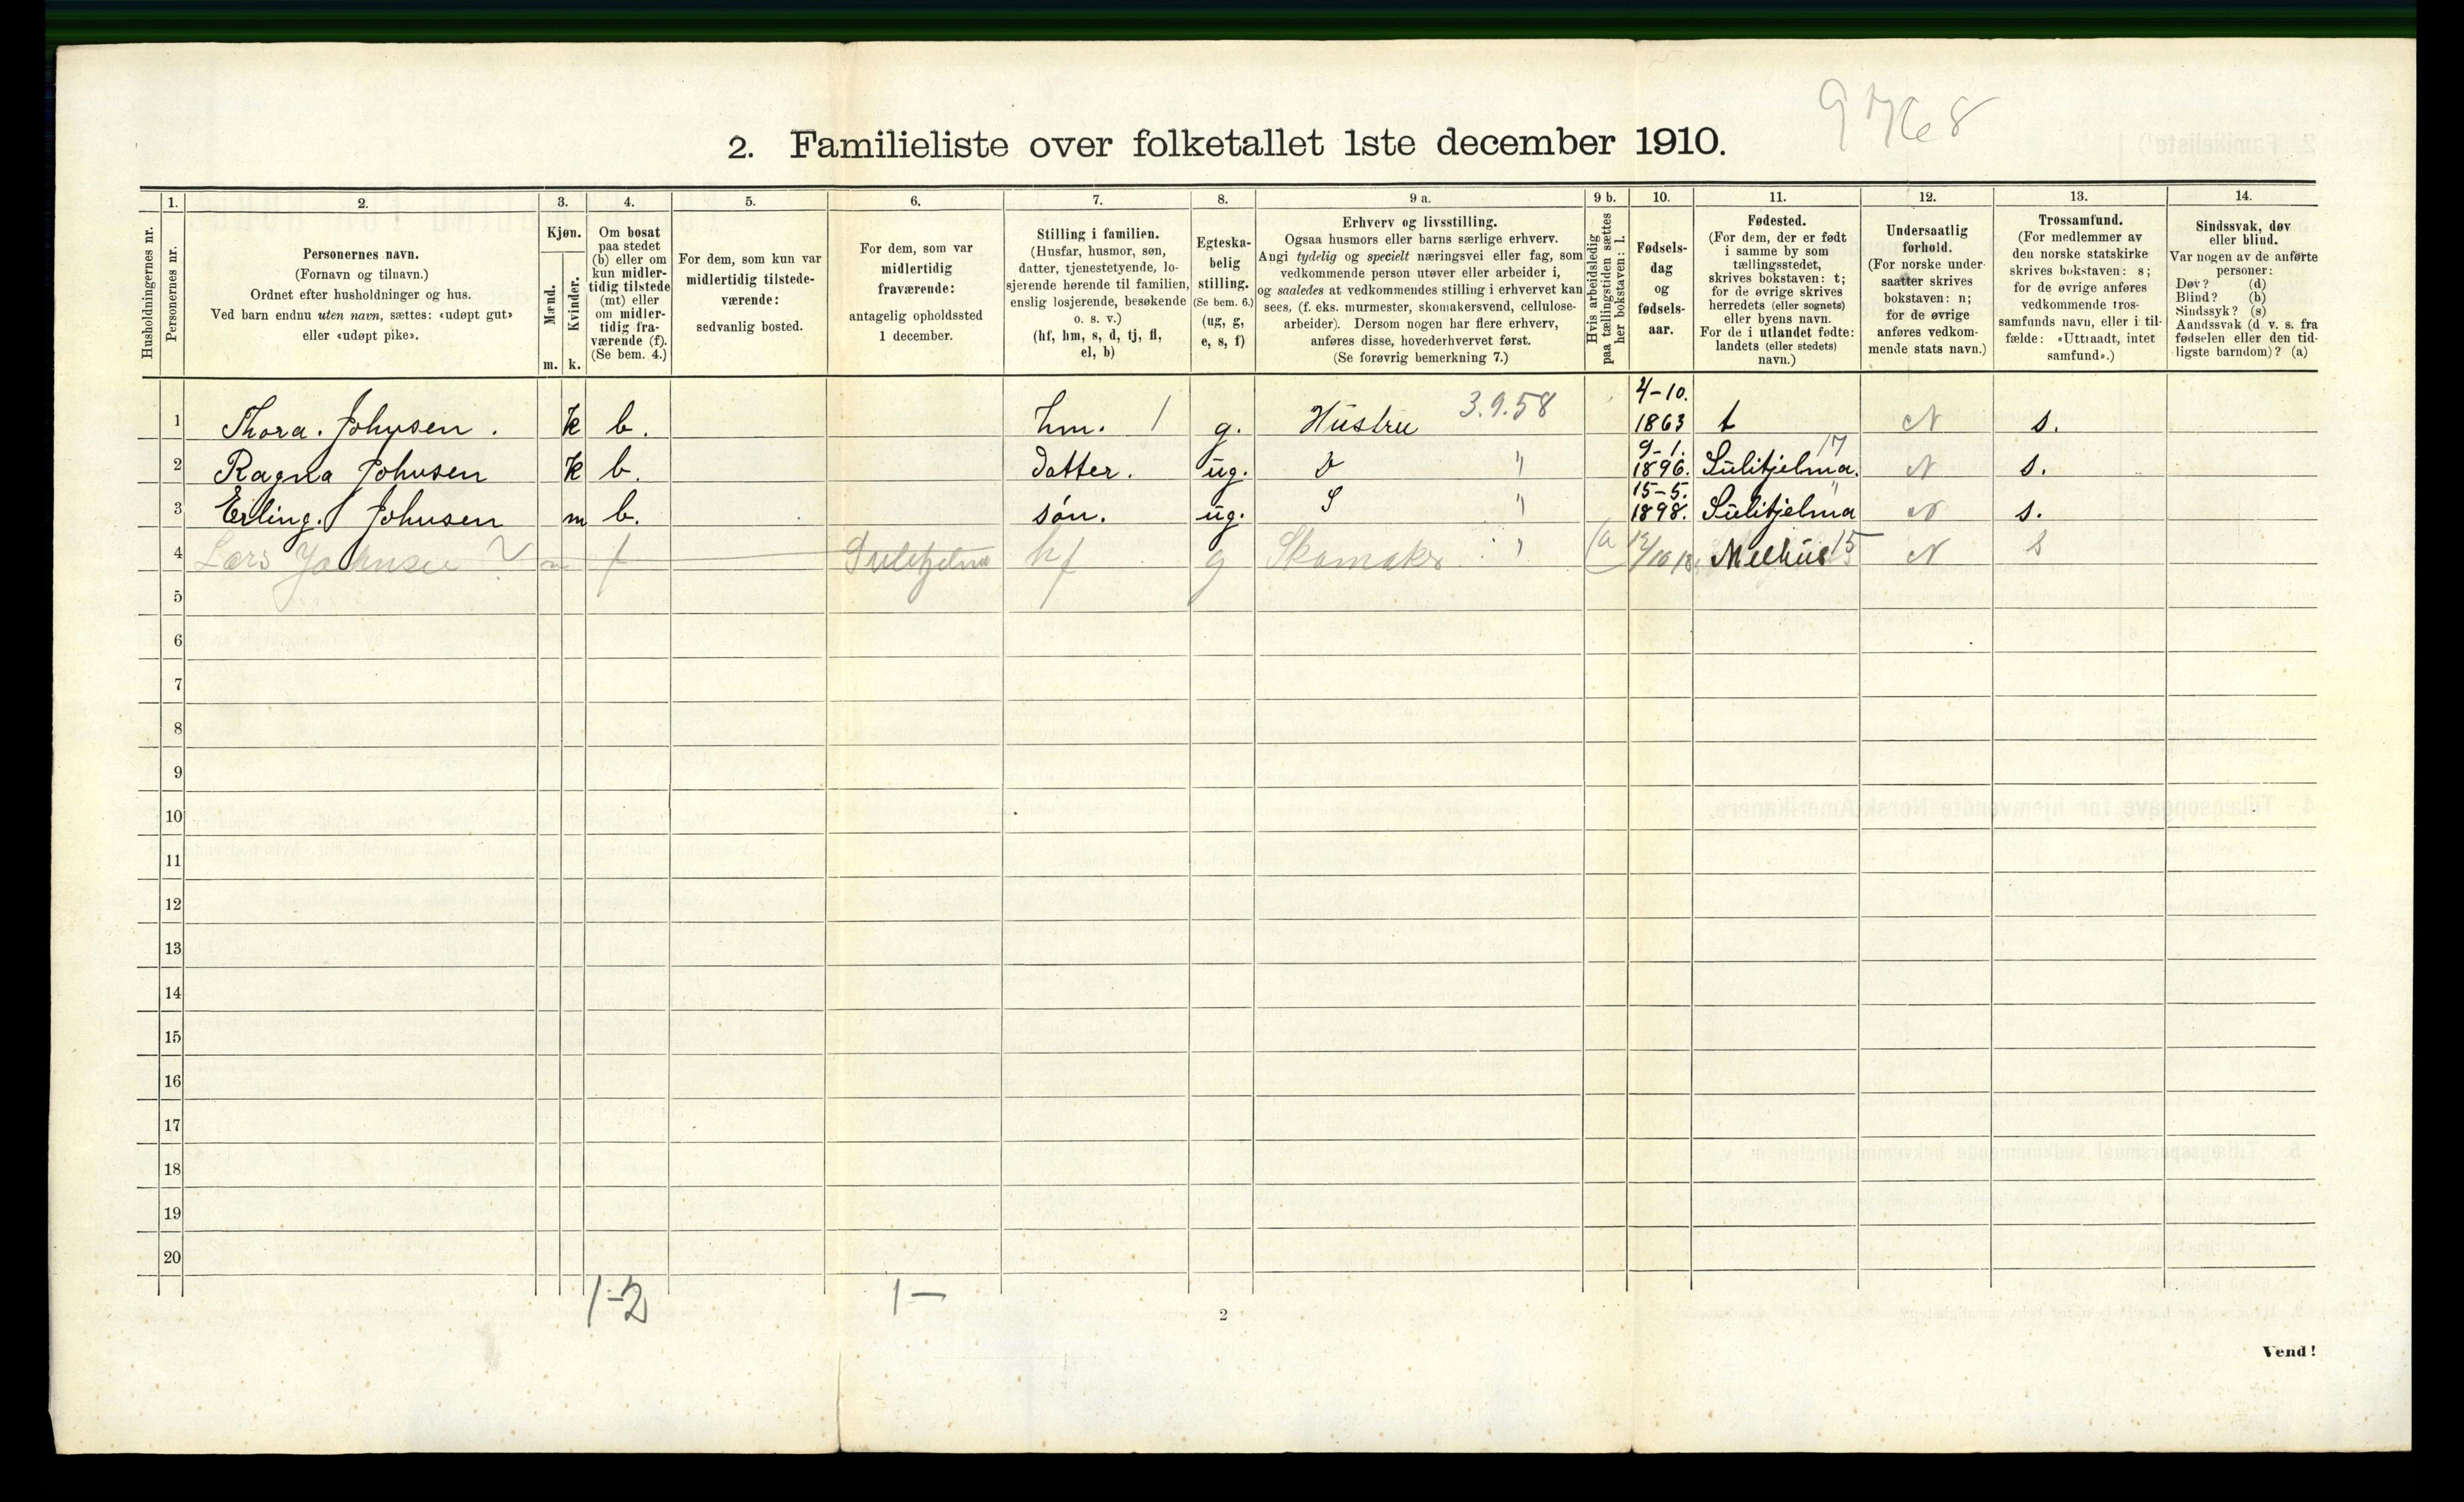 9768
2. Familieliste over folketallet 1ste december 1910.
1. 2. 3. 4. 5. 6. 7. 8. 9 a. 9 b. 10. 11. 12. 13. 14.
Husholdningernes nr.
Personernes nr.
Personernes navn.
(Fornavn og tilnavn.)
Ordnet efter husholdninger og hus.
Ved barn endnu uten navn, sættes: «udøpt gut»
eller «udøpt pike».
Kjøn.
Mænd.
Kvinder.
m. k.
Om bosat
paa stedet
(b) eller om
kun midler-
tidig tilstede
(mt) eller
om midler-
tidig fra-
værende (f).
(Se bem. 4.)
For dem, som kun var
midlertidig tilstede-
værende:
sedvanlig bosted.
For dem, som var
midlertidig
fraværende:
antagelig opholdssted
1 december.
Stilling i familien.
(Husfar, husmor, søn,
datter, tjenestetyende, lo-
sjerende hørende til familien,
enslig losjerende, besøkende
o. s. v.)
(hf, hm, s, d, tj, fl,
el, b)
Egteska-
belig
stilling.
(Se bem. 6.)
(ug, g,
e, s, f)
Erhverv og livsstilling.
Ogsaa husmors eller barns særlige erhverv.
Angi tydelig og specielt næringsvei eller fag, som
vedkommende person utøver eller arbeider i,
og saaledes at vedkommendes stilling i erhvervet kan
sees, (f. eks. murmester, skomakersvend, cellulose-
arbeider). Dersom nogen har flere erhverv,
anføres disse, hovederhvervet først.
(Se forøvrig bemerkning 7.)
Hvis arbeidsledig
paa tællingstiden sættes
her bokstaven: l.
Fødsels-
dag
og
fødsels-
aar.
Fødested.
(For dem, der er født
i samme by som
tællingsstedet,
skrives bokstaven: t;
for de øvrige skrives
herredets (eller sognets)
eller byens navn.
For de i utlandet fødte:
landets (eller stedets)
navn.)
Undersaatlig
forhold.
(For norske under-
saatter skrives
bokstaven: n;
for de øvrige
anføres vedkom-
mende stats navn.)
Trossamfund.
(For medlemmer av
den norske statskirke
skrives bokstaven: s;
for de øvrige anføres
vedkommende tros-
samfunds navn, eller i til-
fælde: «Uttraadt, intet
samfund».)
Sindssvak, døv
eller blind.
Var nogen av de anførte
personer:
Døv? (d)
Blind? (b)
Sindssyk? (s)
Aandssvak (d. v. s. fra
fødselen eller den tid-
ligste barndom)? (a)
1 Thora. Johnsen. k b. hm. 1 g. Hustru 3.9.58 4-10. 1863 t N s.
2 Ragna Johnsen k b. datter. ug. D " 9-1. 1896. Sulitjelma. 17 N s.
3 Erling. Johnsen m b. søn. ug. S " 15-5. 1898. Sulitjelma " N s.
4 Lars Johnsen m f Sulitjelma hf g Skomaker " Melhus 15 N s
5
6
7
8
9
10
11
12
13
14
15
16
17
18
19
20
1-2 1—
2
Vend!